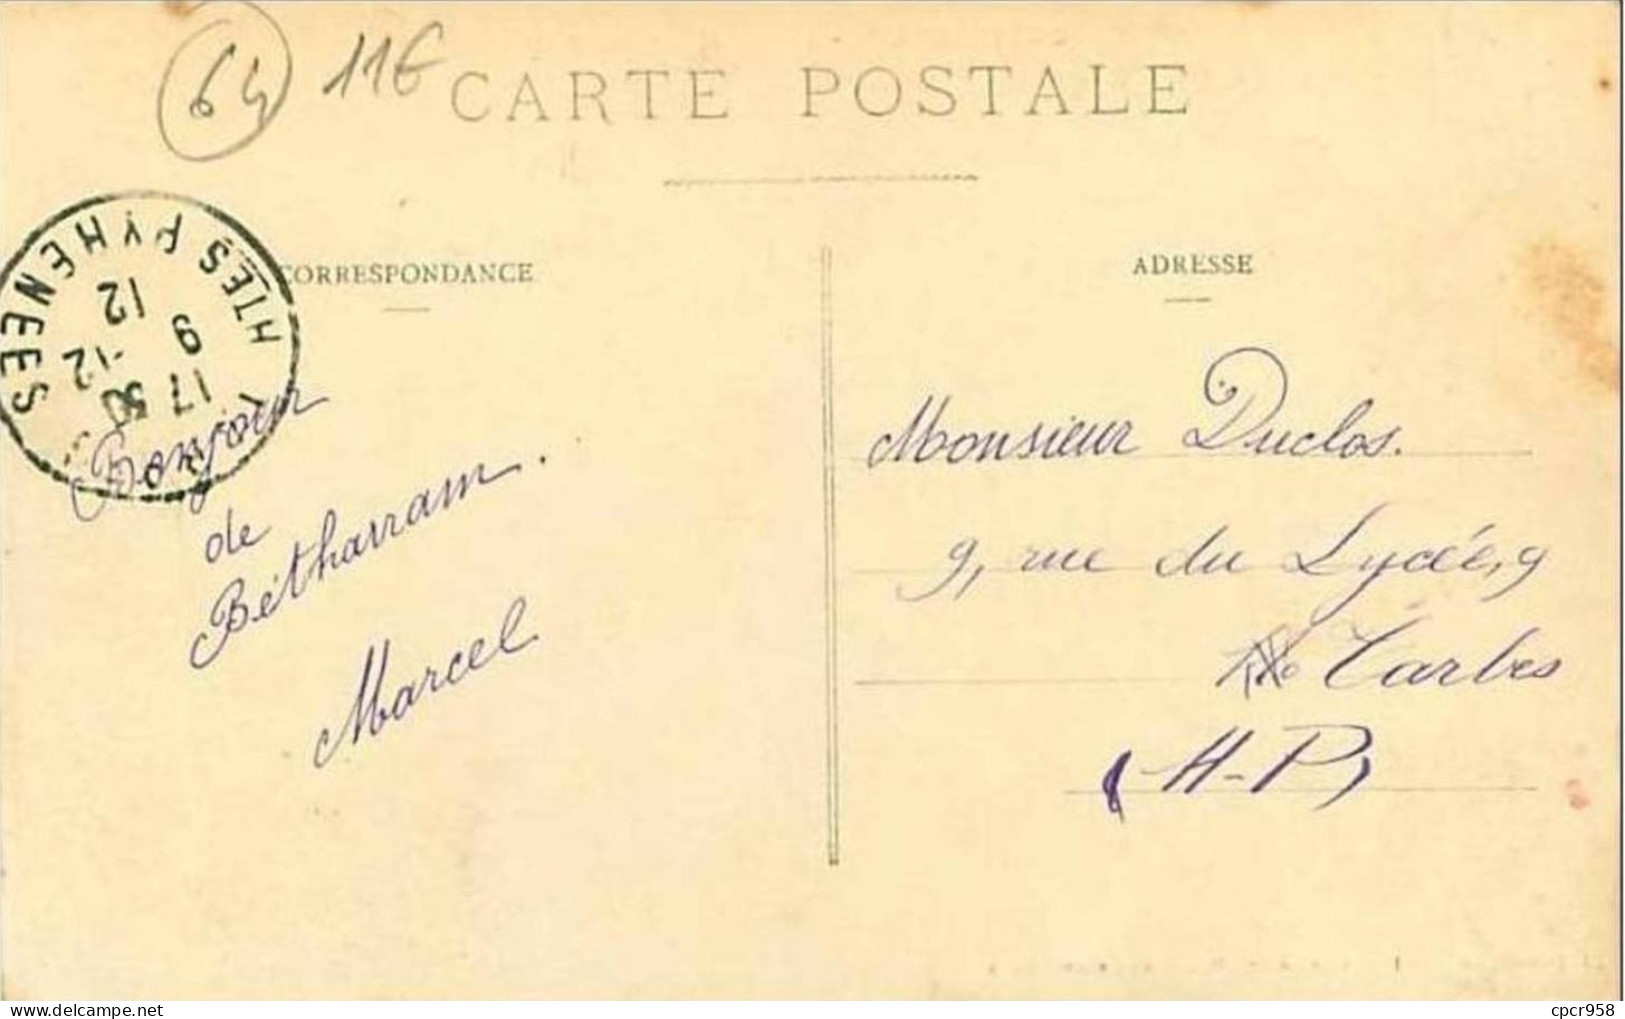 64 11€
CARTE POSTALE
CORRESPONDANCE
ADRESSE
HTES PYRENEES
17 50
9 -12
12
Bonjour
de
Bétharram.
Marcel
Monsieur Duclos.
9, rue du Lycée, 9
Tarbes
(H-P)
cpcr958